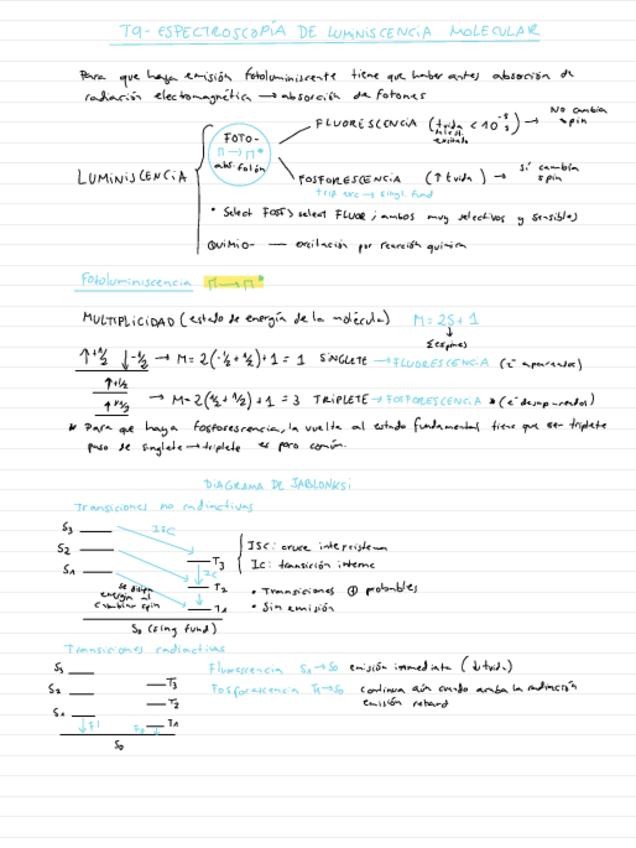 T9- ESPECTROSCOPÍA DE LUMINISCENCIA MOLECULAR
Para que haya emisión fotoluminiscente tiene que haber antes absorción de
radiación electromagnética → absorción de fotones
LUMINISCENCIA
FOTO-
π → π*
abs. fotón
FLUORESCENCIA (tvida < 10⁻⁵ s) → No cambia spin
FOSFORESCENCIA (↑ tvida) → sí cambia spin
trip exc → singl. fund
• Select FOSF > select FLUOR ; ambos muy selectivos y sensibles
QUIMIO- — excitación por reacción química
Fotoluminiscencia π → π*
MULTIPLICIDAD (estado de energía de la molécula) M = 2S + 1
Σ espines
↑+1/2 ↓-1/2 → M = 2(-1/2 + 1/2) + 1 = 1 SINGLETE → FLUORESCENCIA (e⁻ apareados)
↑+1/2
↑+1/2 → M = 2(1/2 + 1/2) + 1 = 3 TRIPLETE → FOSFORESCENCIA (e⁻ desapareados)
* Para que haya fosforescencia, la vuelta al estado fundamental tiene que ser triplete
paso de singlete → triplete es poco común.
DIAGRAMA DE JABLONKSI
Transiciones no radiactivas
S3
ISC
S2
S1
T3
IC
T2
T1
se disipa
energía al
cambiar spin
S0 (sing fund)
ISC: cruce intersistema
IC: transición interna
• Transiciones ⊕ probables
• Sin emisión
Transiciones radiactivas
S3
S2
S1
T3
T2
T1
Fl
Fo
S0
Fluorescencia S1 → S0 emisión inmediata (↓ tvida)
Fosforescencia T1 → S0 continua aún cuando acaba la radiación
emisión retard